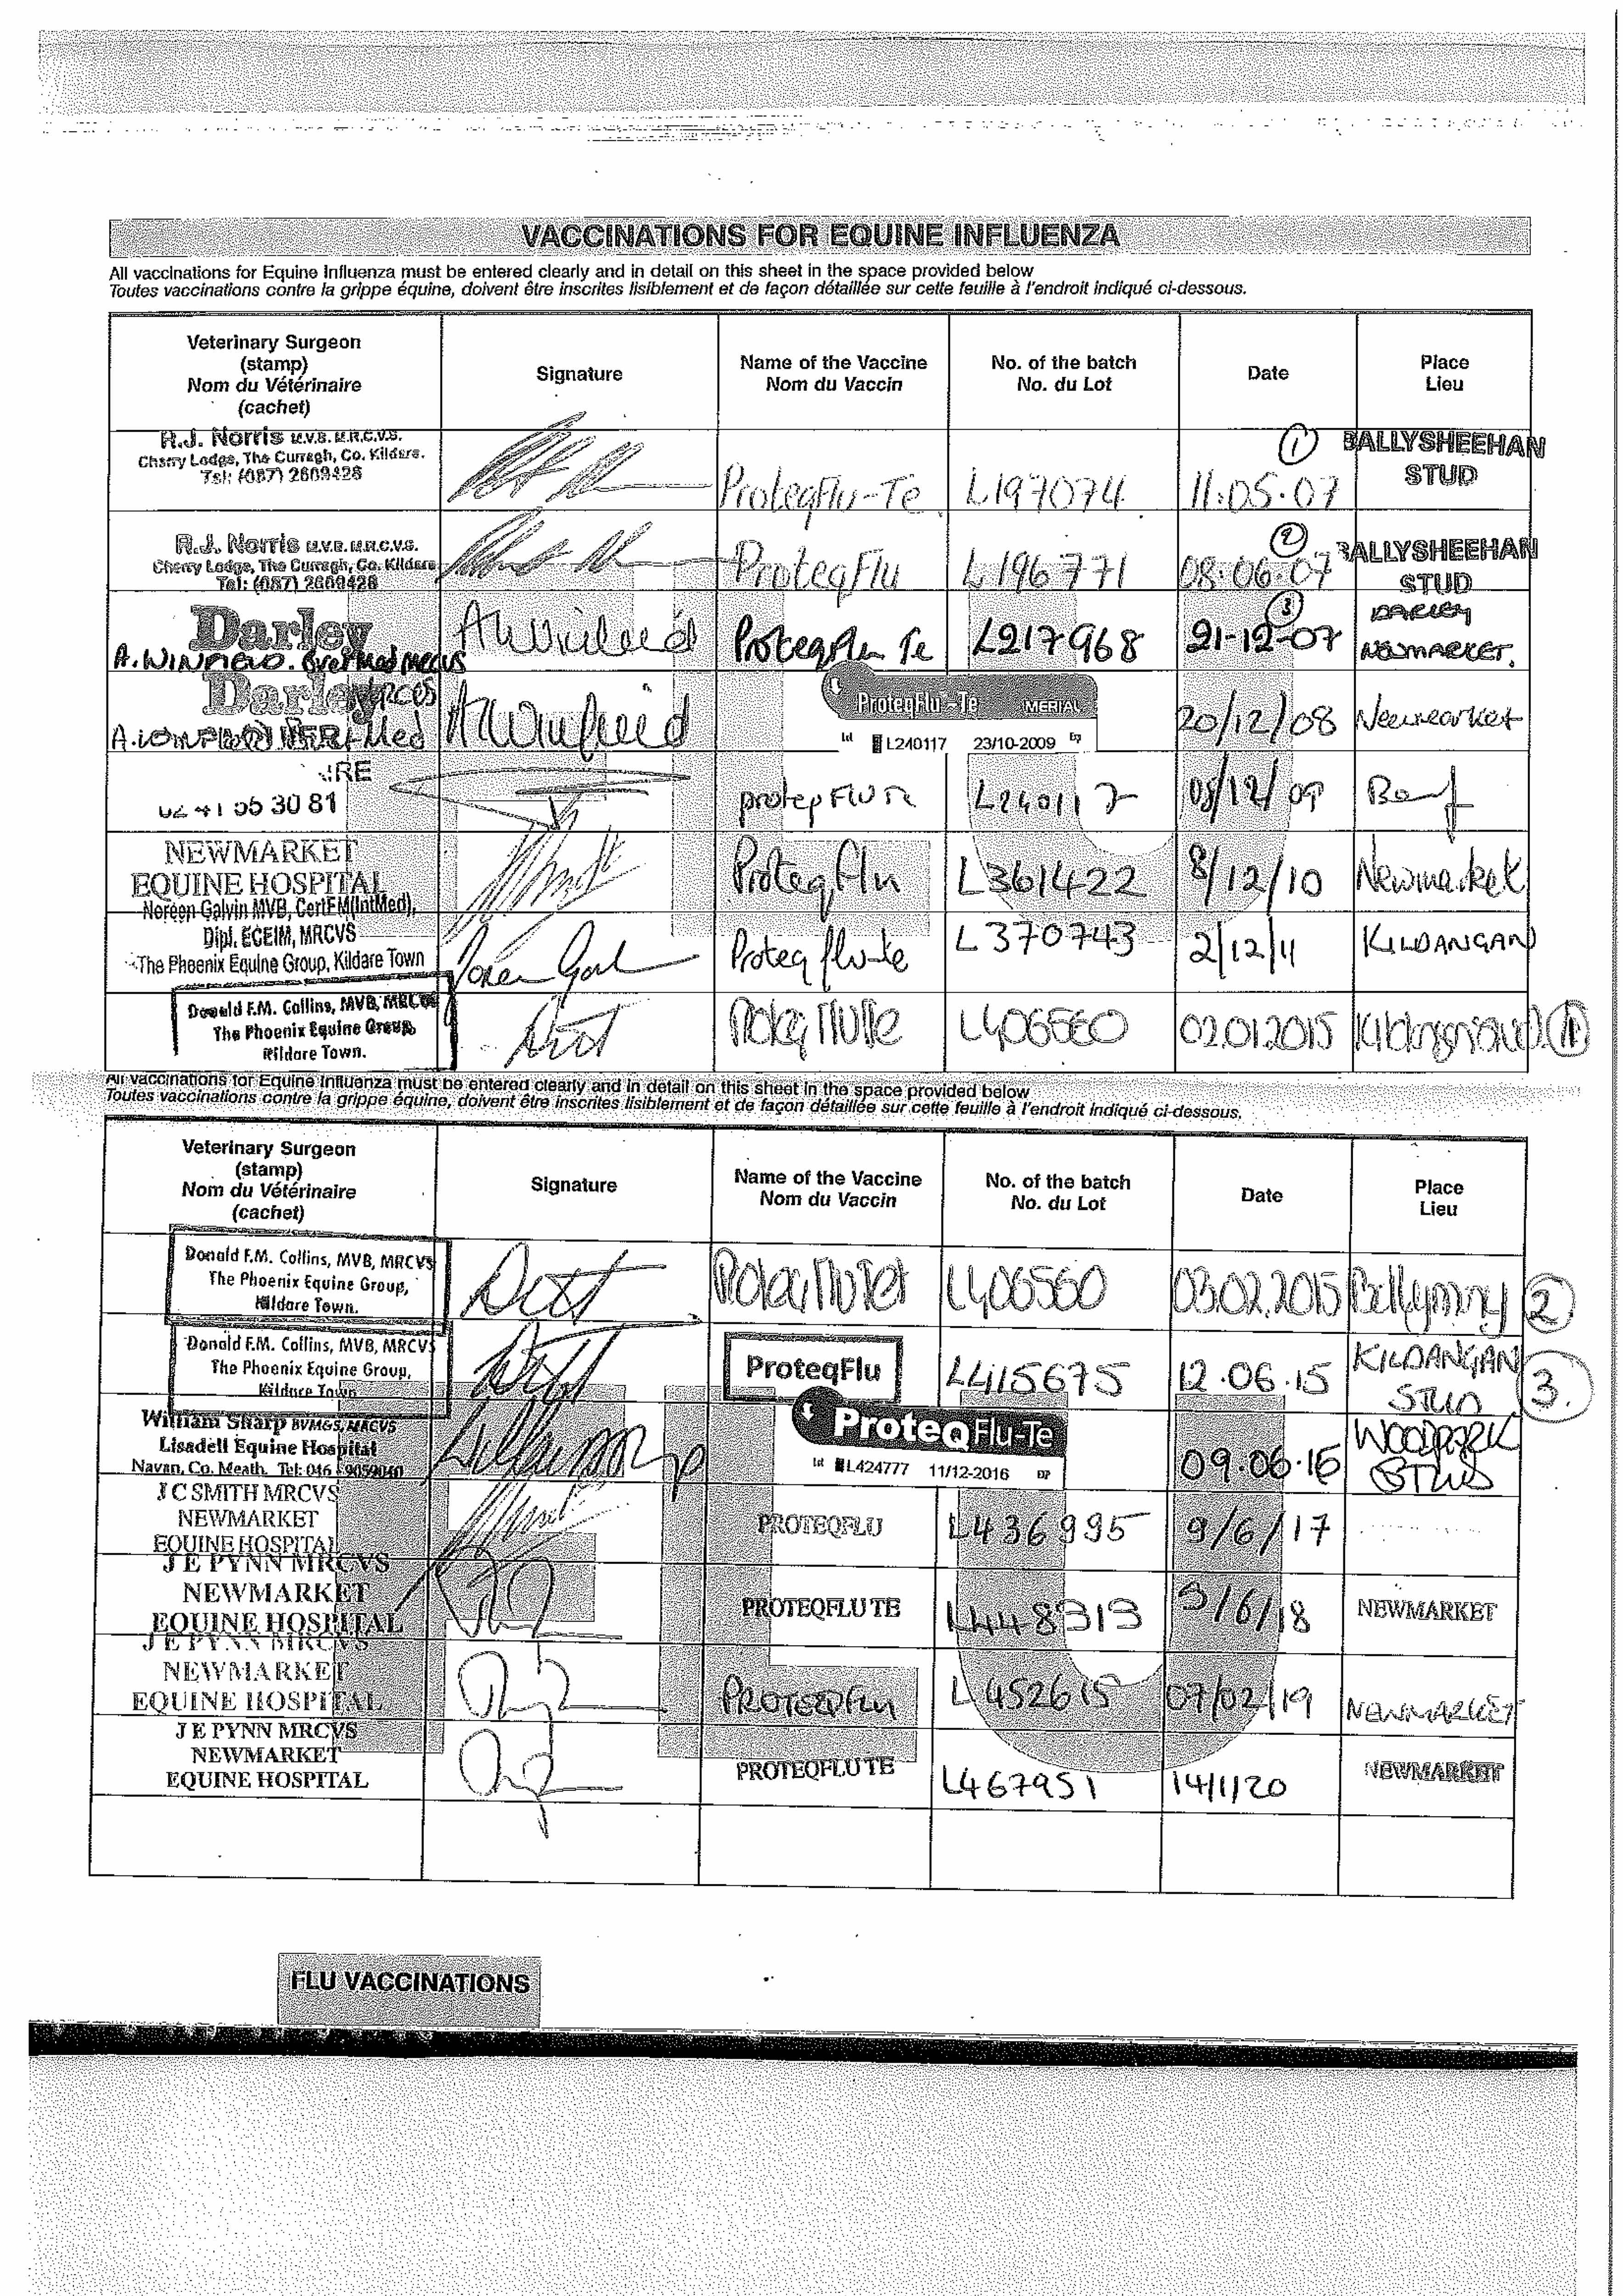 VACCINATIONS FOR EQUINE INFLUENZA
All vaccinations for Equine Influenza must be entered clearly and in detail on this sheet in the space provided below
Toutes vaccinations contre la grippe équine, doivent être inscrites lisiblement et de façon détaillée sur cette feuille à l'endroit indiqué ci-dessous.
Veterinary Surgeon
(stamp)
Nom du Vétérinaire
(cachet)
Signature
Name of the Vaccine
Nom du Vaccin
No. of the batch
No. du Lot
Date
Place
Lieu
R.J. Norris M.V.B. M.R.C.V.S.
Cherry Lodge, The Curragh, Co. Kildare.
Tel: (087) 2609428
ProteqFlu-Te L197074 11.05.07 1
BALLYSHEEHAN
STUD
R.J. Norris M.V.B. M.R.C.V.S.
Cherry Lodge, The Curragh, Co. Kildare
Tel: (087) 2609428
ProteqFlu L196771 08.06.07 2
BALLYSHEEHAN
STUD
Darley
A. WINFIELD.
ProteqFlu Te L217968 21-12-07 3
DARLEY
NEWMARKET.
Darley
ProteqFlu-Te MERIAL
Lot L240117 23/10-2009 Exp
20/12/08 Newmarket
RE
02 41 06 30 81
protep FLU Te L240117 08/12/09
NEWMARKET
EQUINE HOSPITAL
ProteqFlu L361422 8/12/10 Newmarket
Noreen Galvin MVB, CertEM(IntMed),
Dipl. ECEIM, MRCVS
The Phoenix Equine Group, Kildare Town
Proteq flu-te L370743 2/12/11 KILDANGAN
Donald F.M. Collins, MVB, MRCVS
The Phoenix Equine Group,
Kildare Town.
L406560 02.01.2015 1
All vaccinations for Equine Influenza must be entered clearly and in detail on this sheet in the space provided below
Toutes vaccinations contre la grippe équine, doivent être inscrites lisiblement et de façon détaillée sur cette feuille à l'endroit indiqué ci-dessous.
Veterinary Surgeon
(stamp)
Nom du Vétérinaire
(cachet)
Signature
Name of the Vaccine
Nom du Vaccin
No. of the batch
No. du Lot
Date
Place
Lieu
Donald F.M. Collins, MVB, MRCVS
The Phoenix Equine Group,
Kildare Town.
L406560 03.02.2015 2
Donald F.M. Collins, MVB, MRCVS
The Phoenix Equine Group,
Kildare Town
ProteqFlu L415675 12.06.15
KILDANGAN
STUD
3.
William Sharp BVM&S, MRCVS
Lisadell Equine Hospital
Navan, Co. Meath. Tel: 046 - 9059040
ProteqFlu-Te
Lot L424777 11/12-2016 EXP
09.06.16
WOODPARK
STUD
J C SMITH MRCVS
NEWMARKET
EQUINE HOSPITAL
PROTEQFLU L436995 9/6/17
J E PYNN MRCVS
NEWMARKET
EQUINE HOSPITAL
PROTEQFLU TE L448313 9/6/18 NEWMARKET
J E PYNN MRCVS
NEWMARKET
EQUINE HOSPITAL
PROTEQFlu L452615 07/02/19 NEWMARKET
J E PYNN MRCVS
NEWMARKET
EQUINE HOSPITAL
PROTEQFLU TE L467951 14/1/20 NEWMARKET
FLU VACCINATIONS